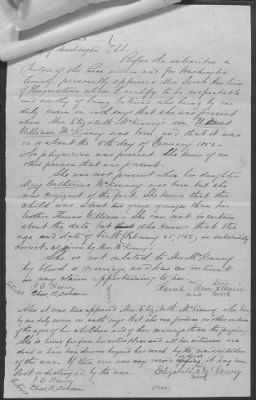 of Washington D.C.
Before the subscriber a
Justice of the Peace within and for Washington
County personally appeared Mrs Sarah Ann Lewis
of Hagerstown whom I certify to be respectable
and worthy of being believed who being by me
duly sworn on oath says that she was present
when Mrs. Elizabeth McKinney's son Thomas
William McKinney was born, and that it was
on or about the 8th day of January 1852.
No physician was present. She knew of no
other person that was present.
She was not present when her daughter
Mary Catherine McKinney was born but she
was cognizant of the fact. She knows that the
child was about two years younger than her
brother Thomas William. She can not be certain
about the date but she knows that the
age and date of birth (February 25, 1855) is substantially
correct, as given by Mrs McKinney.
She is not related to Mrs McKinney
by blood or marriage, and has no interest
in any claim appertaining to her.
her
Sarah Ann X Lewis
mark
Also at same time appeared Mrs Elizabeth McKinney who being
by me duly sworn on oath says that she can produce no other evidence
of the ages of her children and of her marriage than the foregoing
She is living far from her native place and all her witnesses are
dead or have been thrown beyond her reach by the vicissitudes
of the war. If there ever was any record it has been
lost or destroyed by the war. Elizabeth X McKinney
(over)